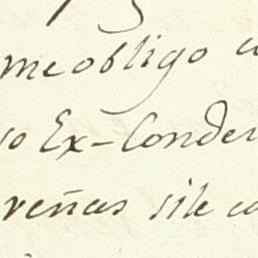 me obligo
Ex-Conde
reñas si le